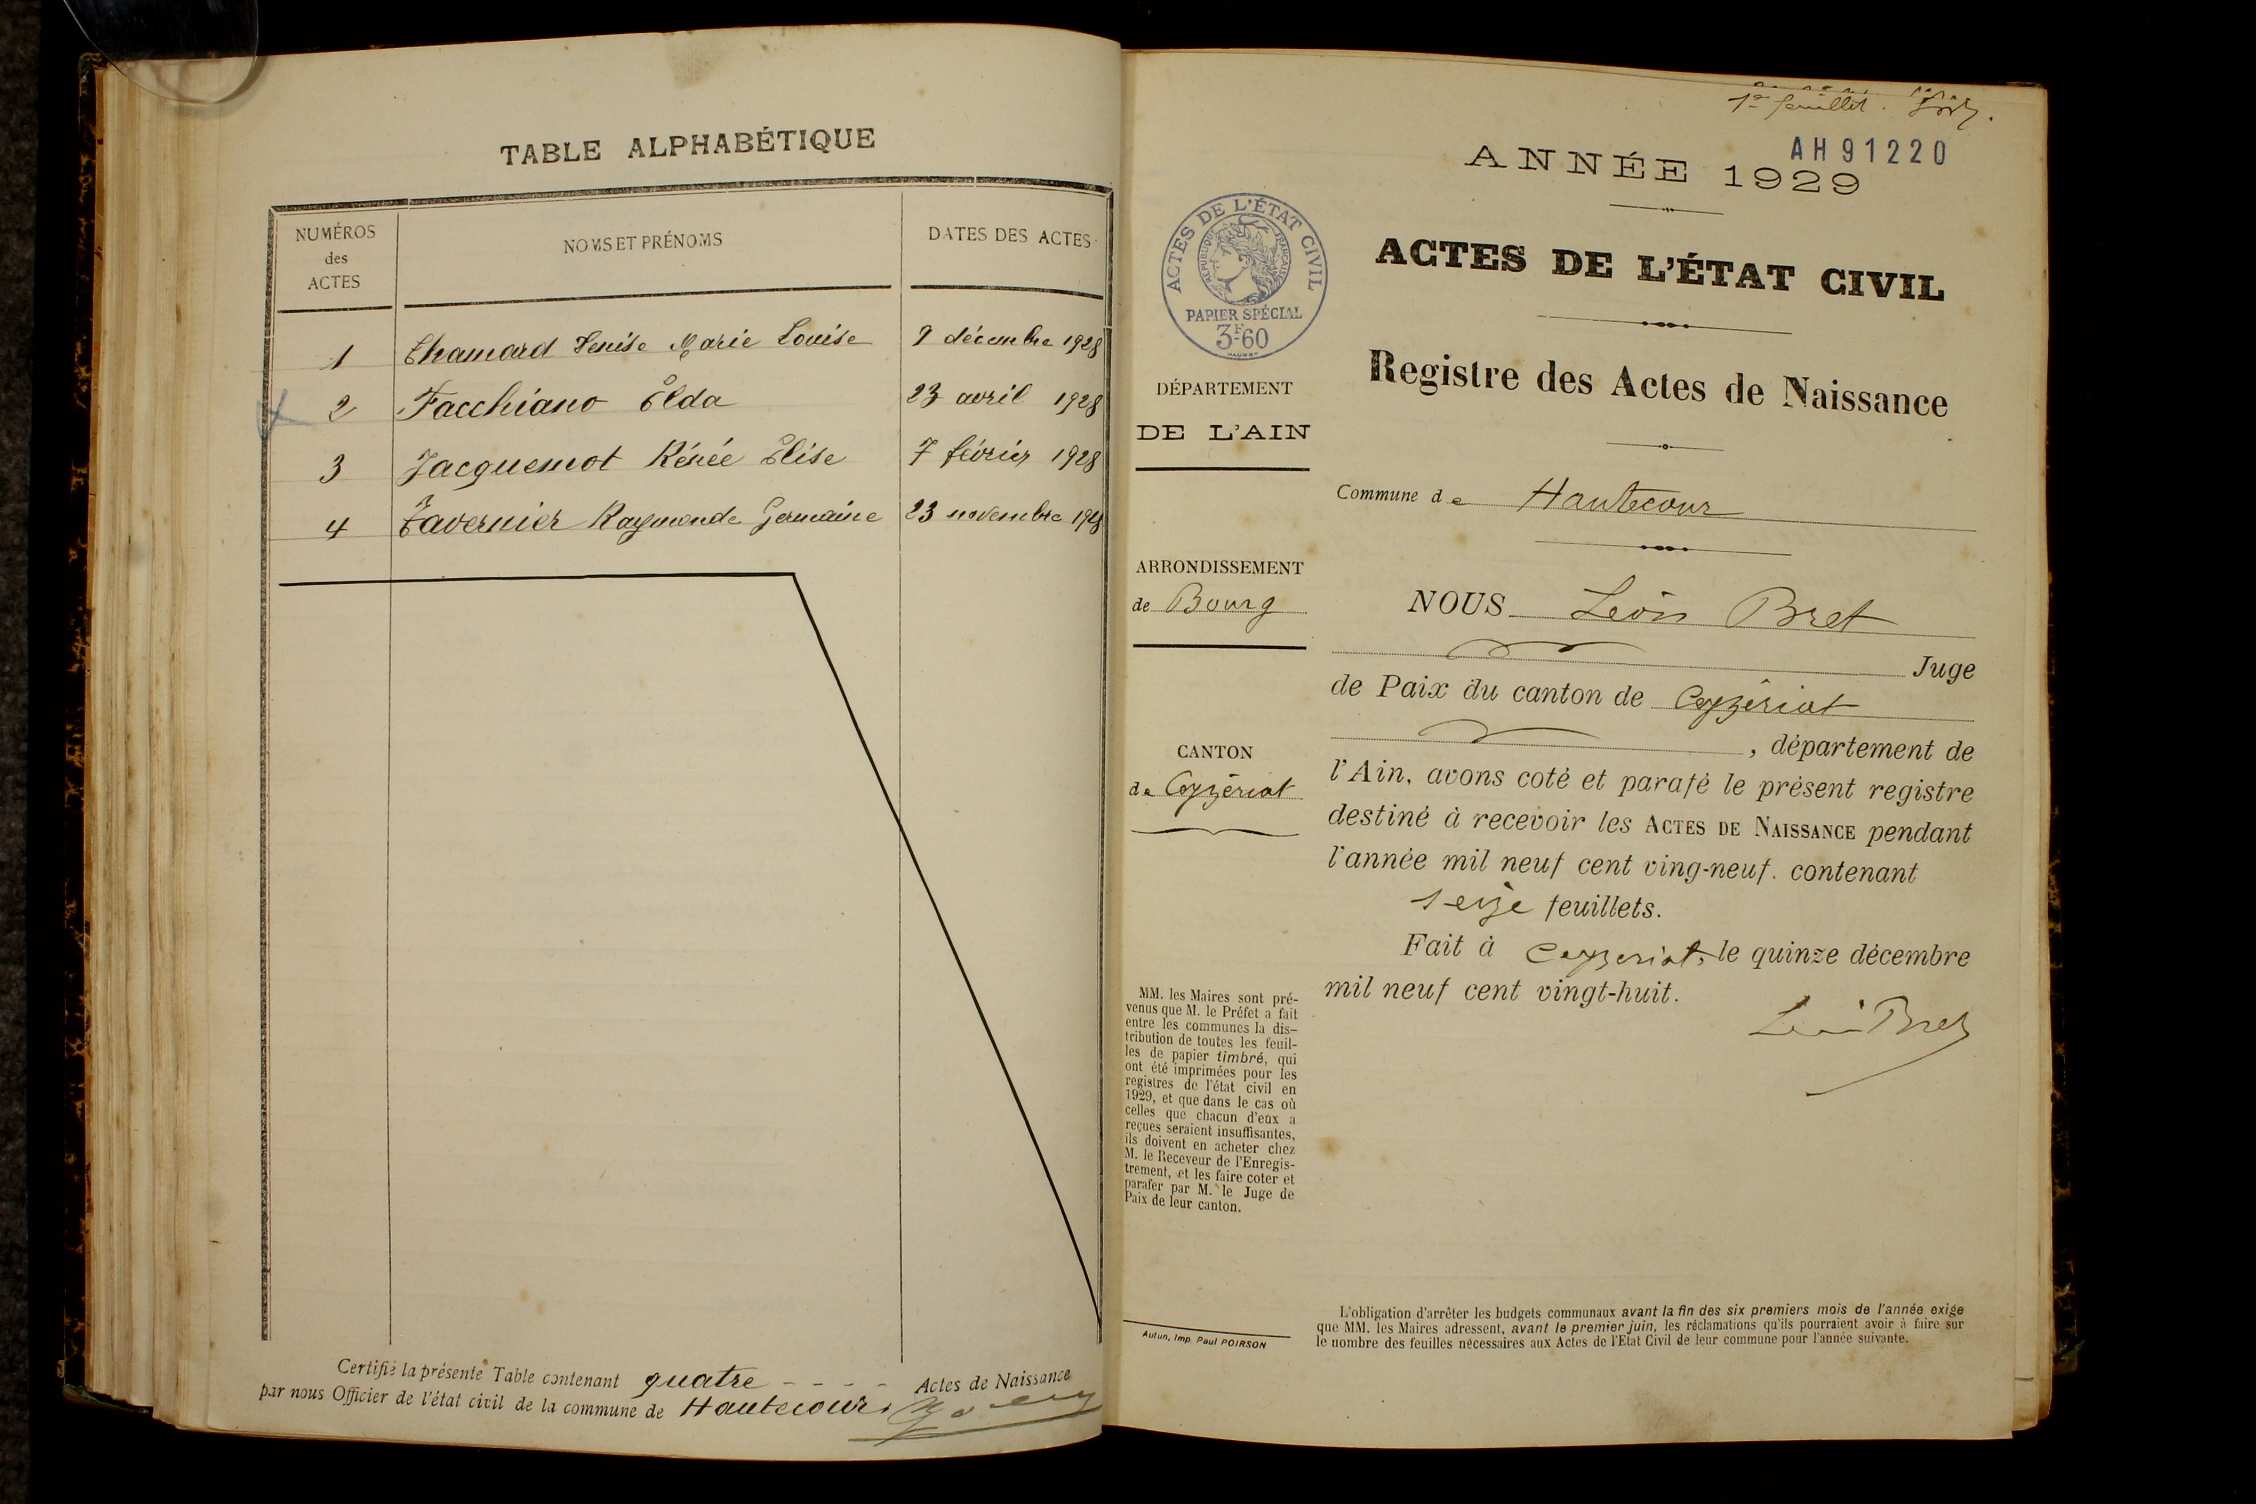 TABLE ALPHABÉTIQUE
NUMÉROS
des
ACTES
NOMS ET PRÉNOMS
DATES DES ACTES
1 Chamard Denise Marie Louise 9 décembre 1928
2 Facchiano Elda 23 avril 1928
3 Jacquemot Rénée Elise 7 février 1928
4 Tavernier Raymonde Germaine 23 novembre 1928
Certifié la présente Table contenant quatre - - - - Actes de Naissance
par nous Officier de l'état civil de la commune de Hautecour.
1er feuillet.
AH91220
ANNÉE 1929
ACTES DE L'ÉTAT CIVIL
RÉPUBLIQUE FRANÇAISE
PAPIER SPÉCIAL
3F60
ACTES DE L'ÉTAT CIVIL
Registre des Actes de Naissance
DÉPARTEMENT
DE L'AIN
Commune de Hautecour
ARRONDISSEMENT
de Bourg
CANTON
de Ceyzériat
MM. les Maires sont pré-
venus que M. le Préfet a fait
entre les communes la dis-
tribution de toutes les feuil-
les de papier timbré, qui
ont été imprimées pour les
registres de l'état civil en
1929, et que dans le cas où
celles que chacun d'eux a
reçues seraient insuffisantes,
ils doivent en acheter chez
M. le Receveur de l'Enregis-
trement, et les faire coter et
parafer par M. le Juge de
Paix de leur canton.
Autun, Imp. Paul POIRSON
NOUS Léon Bret
Juge
de Paix du canton de Ceyzériat
, département de
l'Ain, avons coté et parafé le présent registre
destiné à recevoir les ACTES DE NAISSANCE pendant
l'année mil neuf cent ving-neuf. contenant
seize feuillets.
Fait à Ceyzeriat, le quinze décembre
mil neuf cent vingt-huit.
Léon Bret
L'obligation d'arrêter les budgets communaux avant la fin des six premiers mois de l'année exige
que MM. les Maires adressent, avant le premier juin, les réclamations qu'ils pourraient avoir à faire sur
le nombre des feuilles nécessaires aux Actes de l'Etat Civil de leur commune pour l'année suivante.